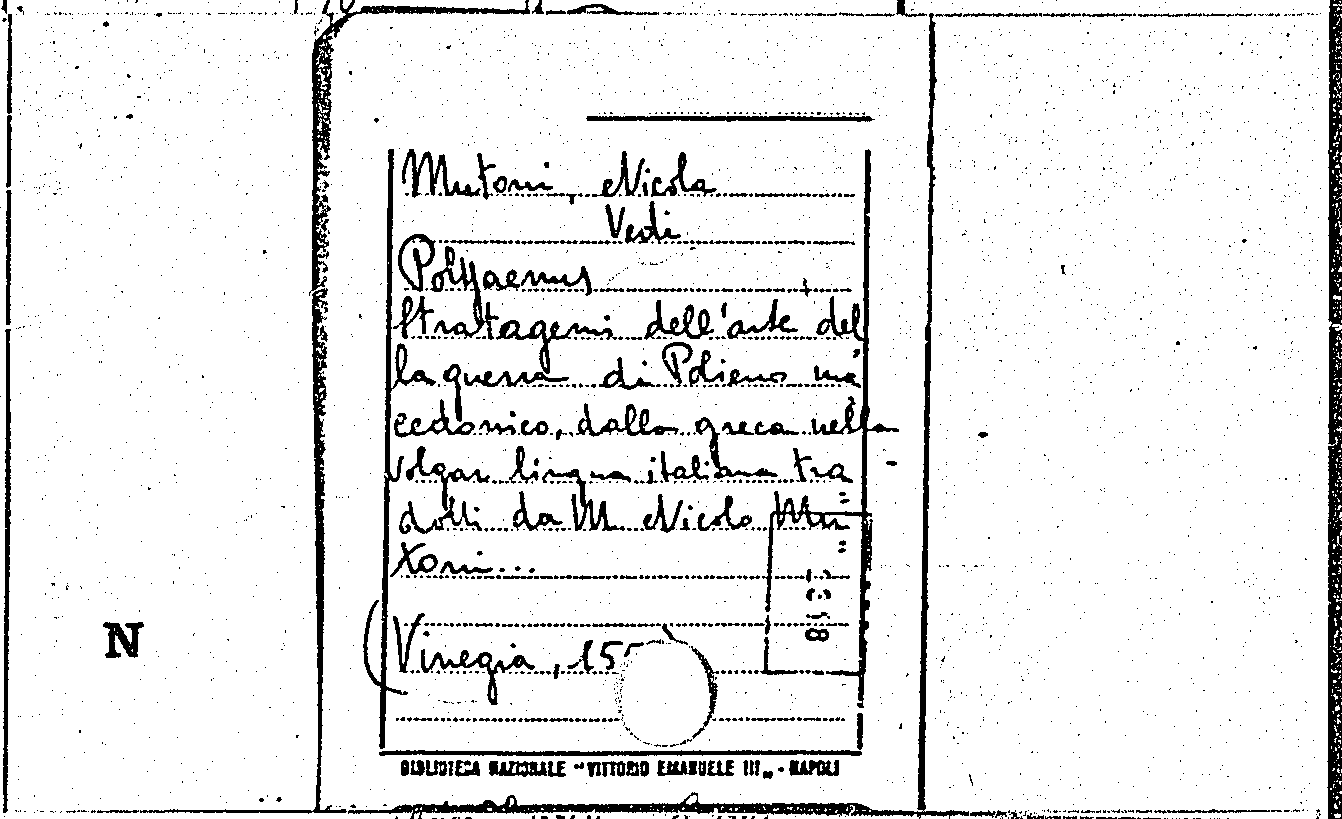 Mutoni, Nicola
Vedi
Polyaenus
Stratagemi dell'arte del
la guerra di Polieno ma
cedonico, dalla greca nella
volgar lingua italiana tra
dotti da M. Nicolo Mu
toni...
Vinegia, 155
N
BIBLIOTECA NAZIONALE "VITTORIO EMANUELE III„ - NAPOLI